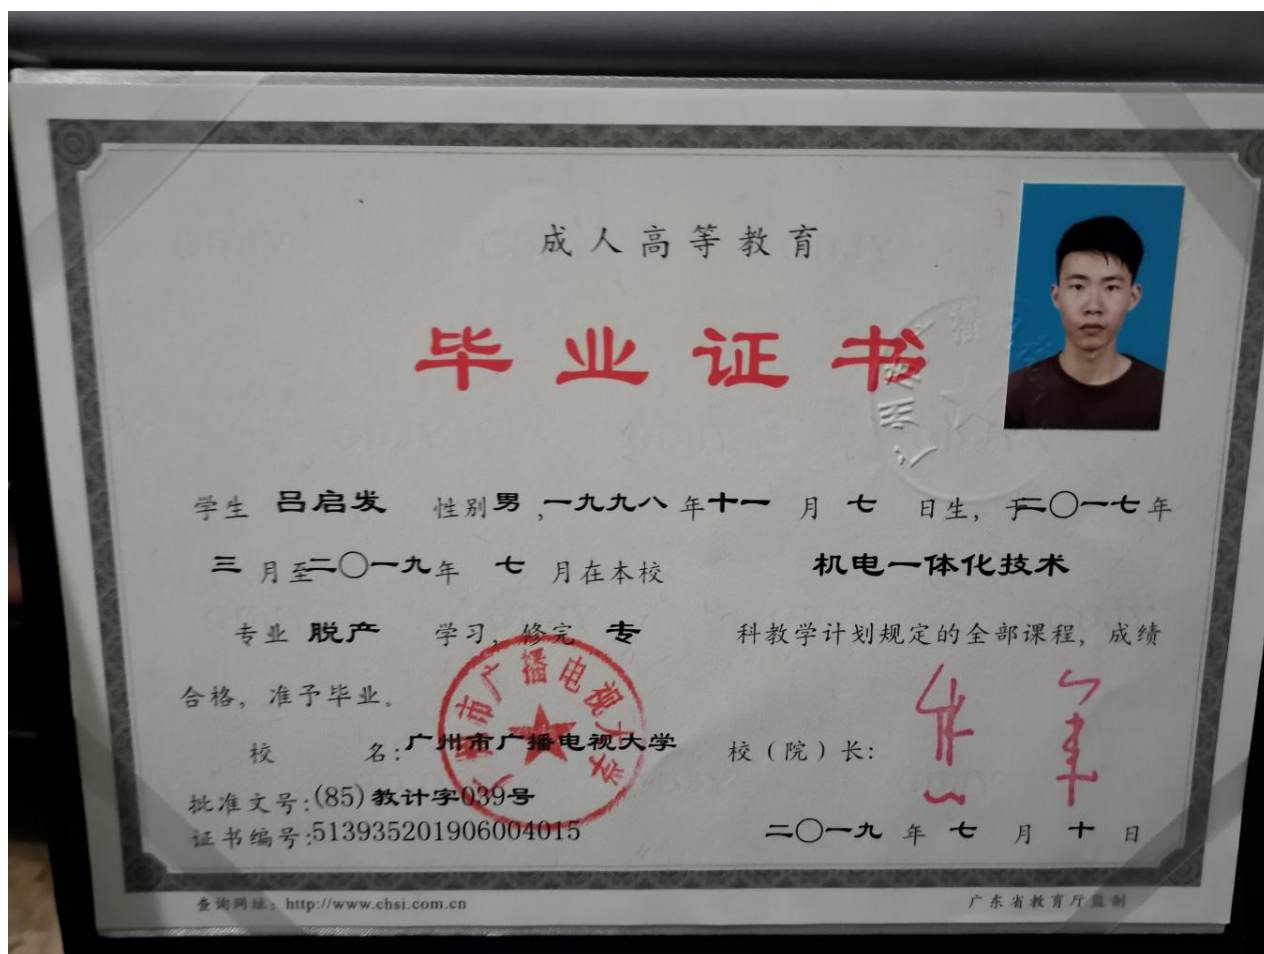 成人高等教育
毕业证书
学生 吕启发 性别 男 ,一九九八 年 十一 月 七 日生, 于二〇一七 年
三 月至二〇一九 年 七 月在本校 机电一体化技术
专业 脱产 学习, 修完 专 科教学计划规定的全部课程, 成绩
合格, 准予毕业。
校 名:广州市广播电视大学 校(院)长:
批准文号:(85)教计字039号
证书编号:513935201906004015 二〇一九 年 七 月 十 日
广州市广播电视大学
查询网址: http://www.chsi.com.cn 广东省教育厅监制